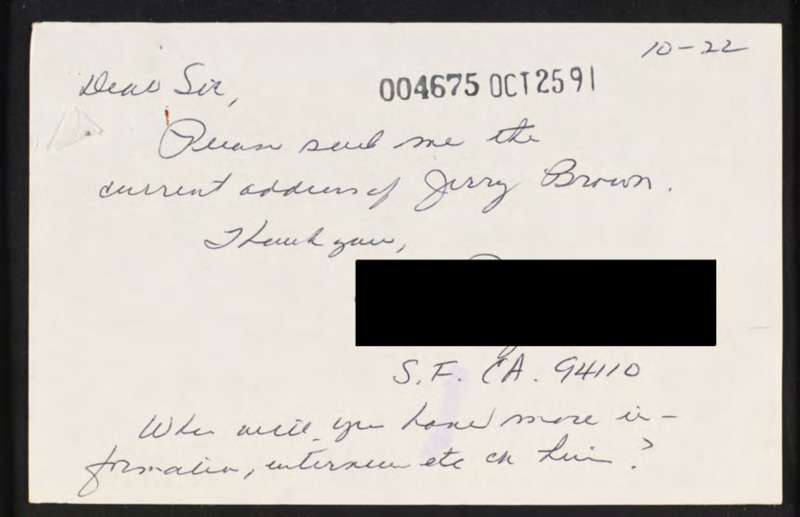 10-22
Dear Sir,
004675 OCT 25 91
Please send me the
current address of Jerry Brown.
Thank you,
S.F. CA. 94110
When will you have more in-
formation, interview etc on him?